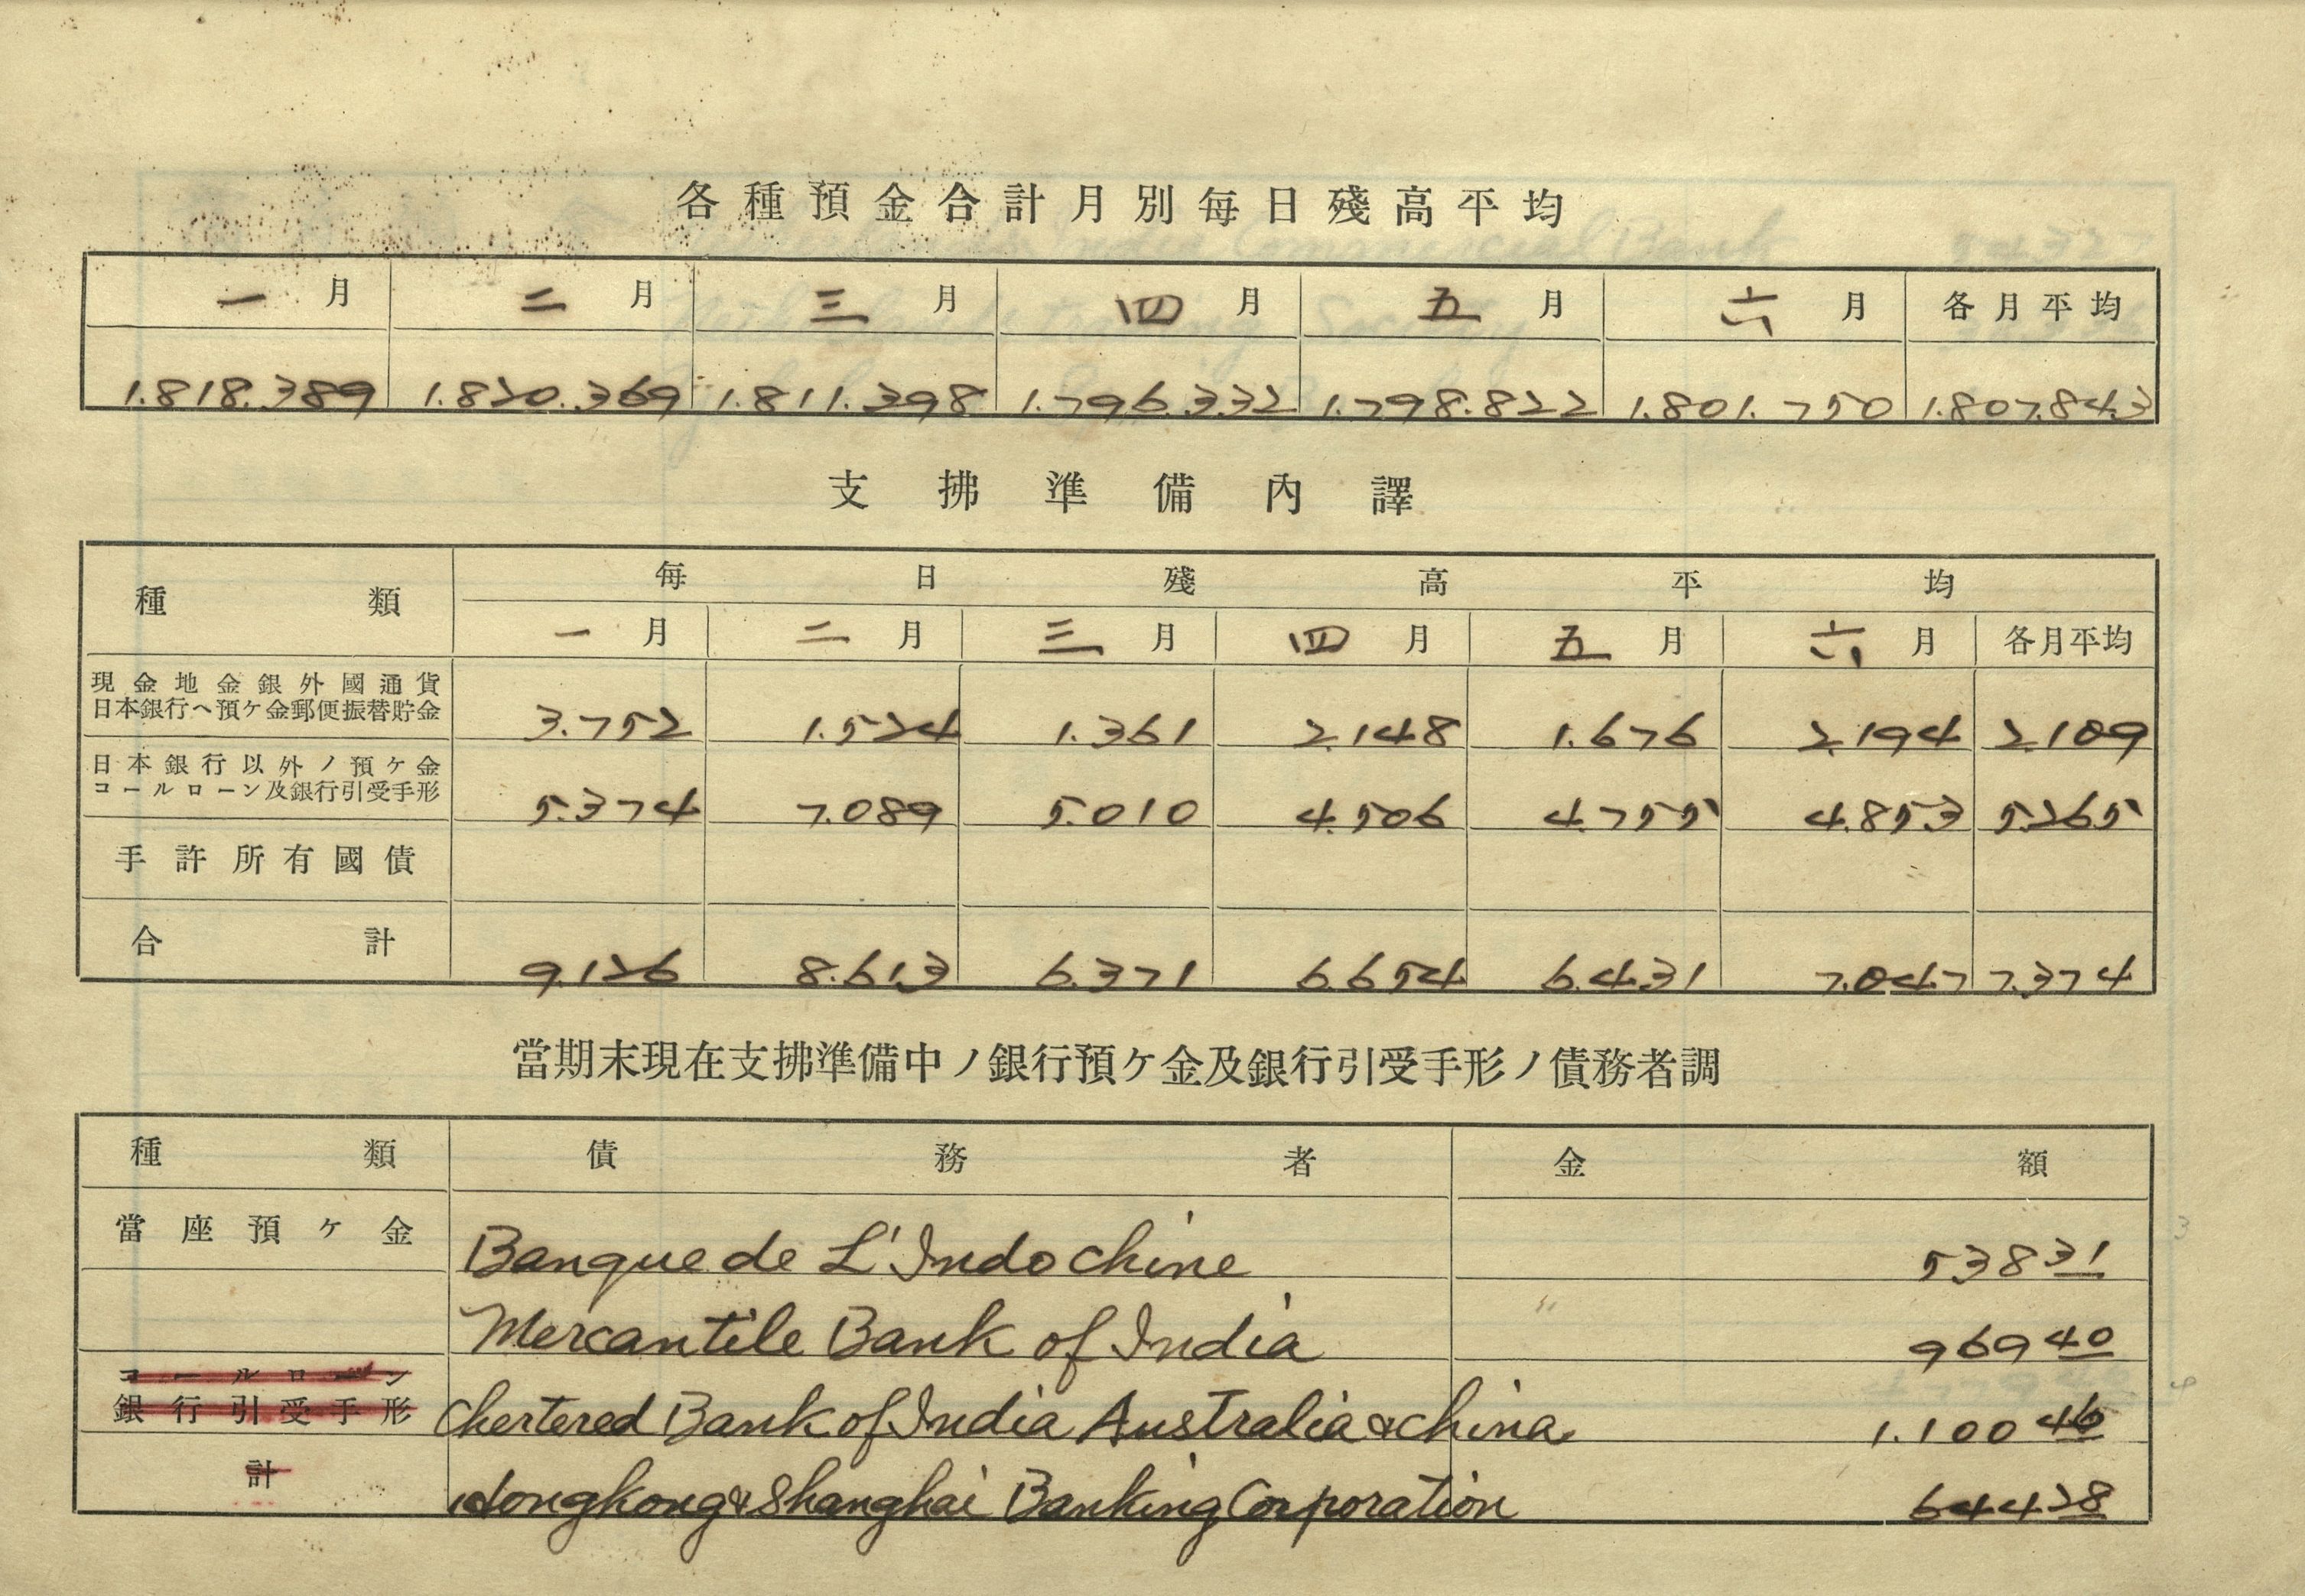 各種預金合計月別每日殘高平均
一月 二月 三月 四月 五月 六月 各月平均
1.818.389 1.820.369 1.811.398 1.796.332 1.798.822 1.801.750 1.807.843
支拂準備內譯
種類 每日殘高平均
一月 二月 三月 四月 五月 六月 各月平均
現金地金銀外國通貨
日本銀行ヘ預ケ金郵便振替貯金 3.752 1.524 1.361 2.148 1.676 2.194 2.109
日本銀行以外ノ預ケ金
コールローン及銀行引受手形 5.374 7.089 5.010 4.506 4.755 4.853 5.265
手許所有國債
合計 9.126 8.613 6.371 6.654 6.431 7.047 7.374
當期末現在支拂準備中ノ銀行預ケ金及銀行引受手形ノ債務者調
種類 債務者 金額
當座預ケ金 Banque de L'Indo chine 538 31
Mercantile Bank of India 969 40
コールローン
銀行引受手形 Chertered Bank of India Australia & china 1.100 46
計 Hongkong & Shanghai Banking Corporation 644 28